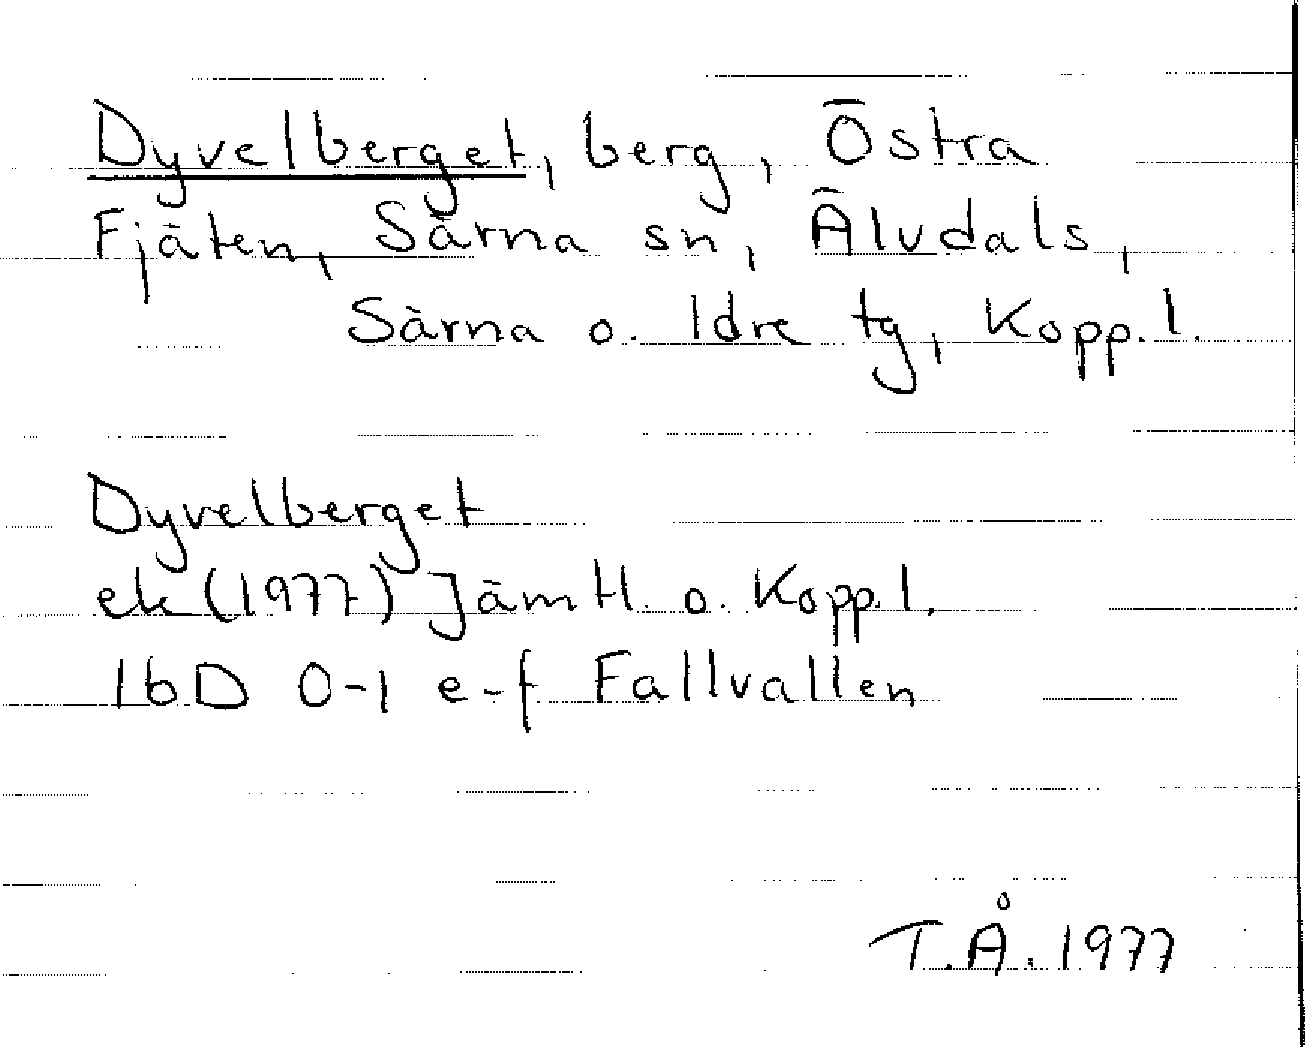 Dyvelberget, berg, Östra
Fjäten, Särna sn, Älvdals,
Särna o. Idre tg, Kopp. l.
Dyvelberget
ek (1977) Jämtl. o. Kopp. l.
16D 0-1 e-f Fallvallen
T.Å. 1977